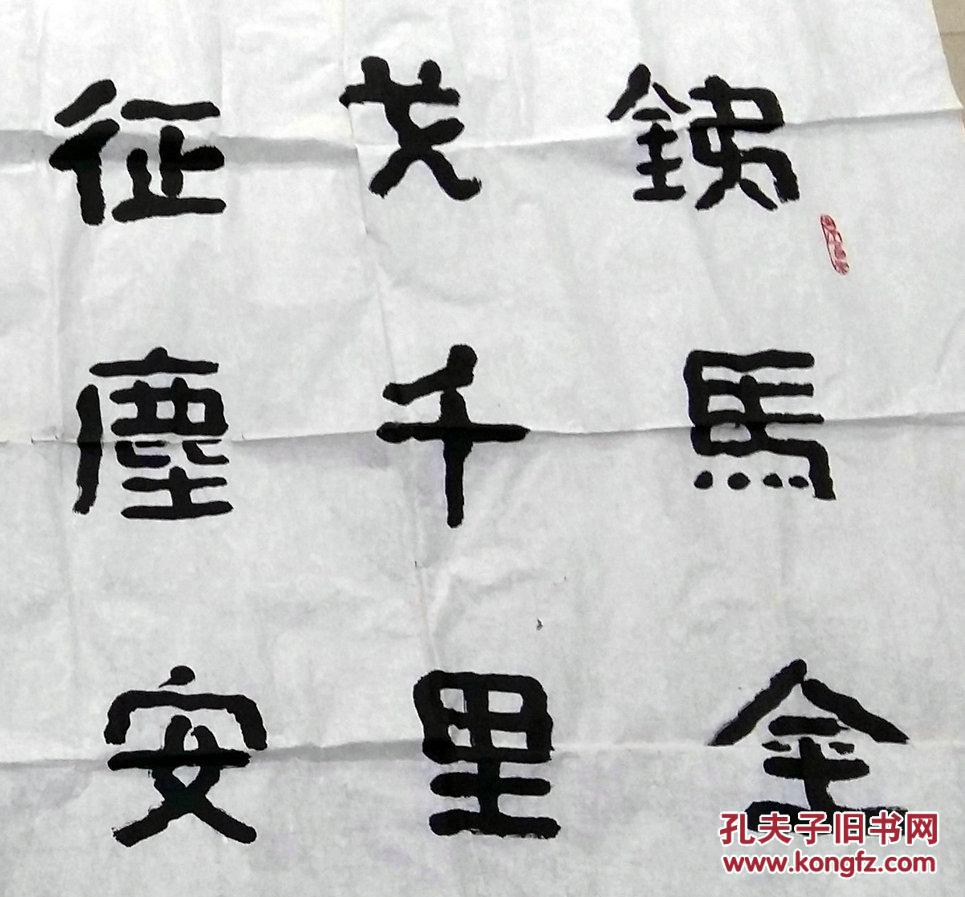 銕馬金
戈千里
征塵安
孔夫子旧书网
www.kongfz.com